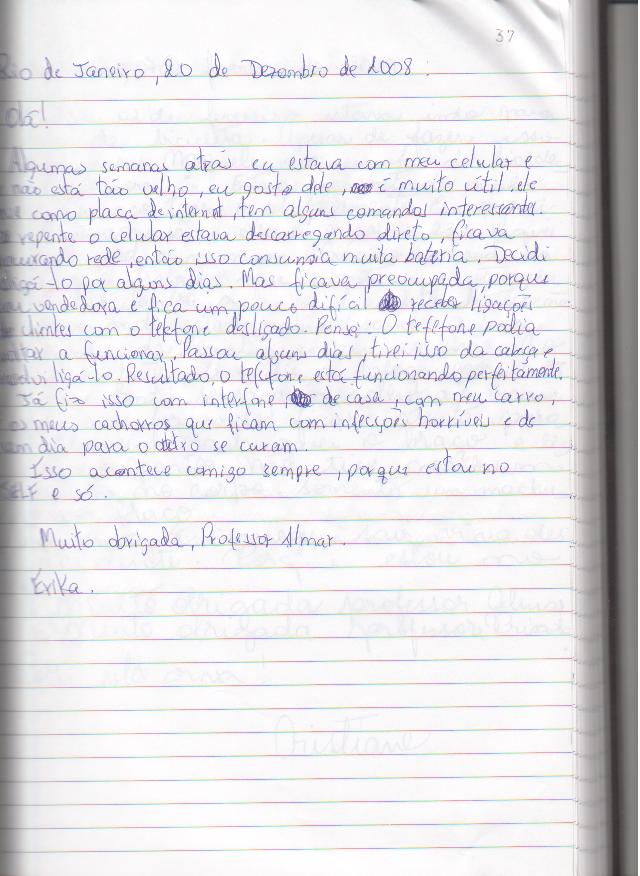 37
Rio de Janeiro, 20 de Dezembro de 2008.
Olá!
Algumas semanas atrás eu estava com meu celular e
não está tão velho, eu gosto dele, é muito útil, ele
como placa de internet, tem alguns comandos interessantes.
repente o celular estava descarregando direto, ficava
procurando rede, então isso consumia muita bateria. Decidi
por alguns dias. Mas ficava preocupada, porque
sou vendedora e fica um pouco difícil receber ligações
de clientes com o telefone desligado. Pensei: O telefone podia
voltar a funcionar. Passou alguns dias, tirei isso da cabeça e
resolvi ligá-lo. Resultado, o telefone está funcionando perfeitamente.
Já fiz isso com interfone, de casa, com meu carro,
os meus cachorros que ficam com infecções horríveis e de
um dia para o outro se curam.
Isso acontece comigo sempre, porque estou no
SELF e só.
Muito obrigada, Professor Almar.
Érika.
Cristiane